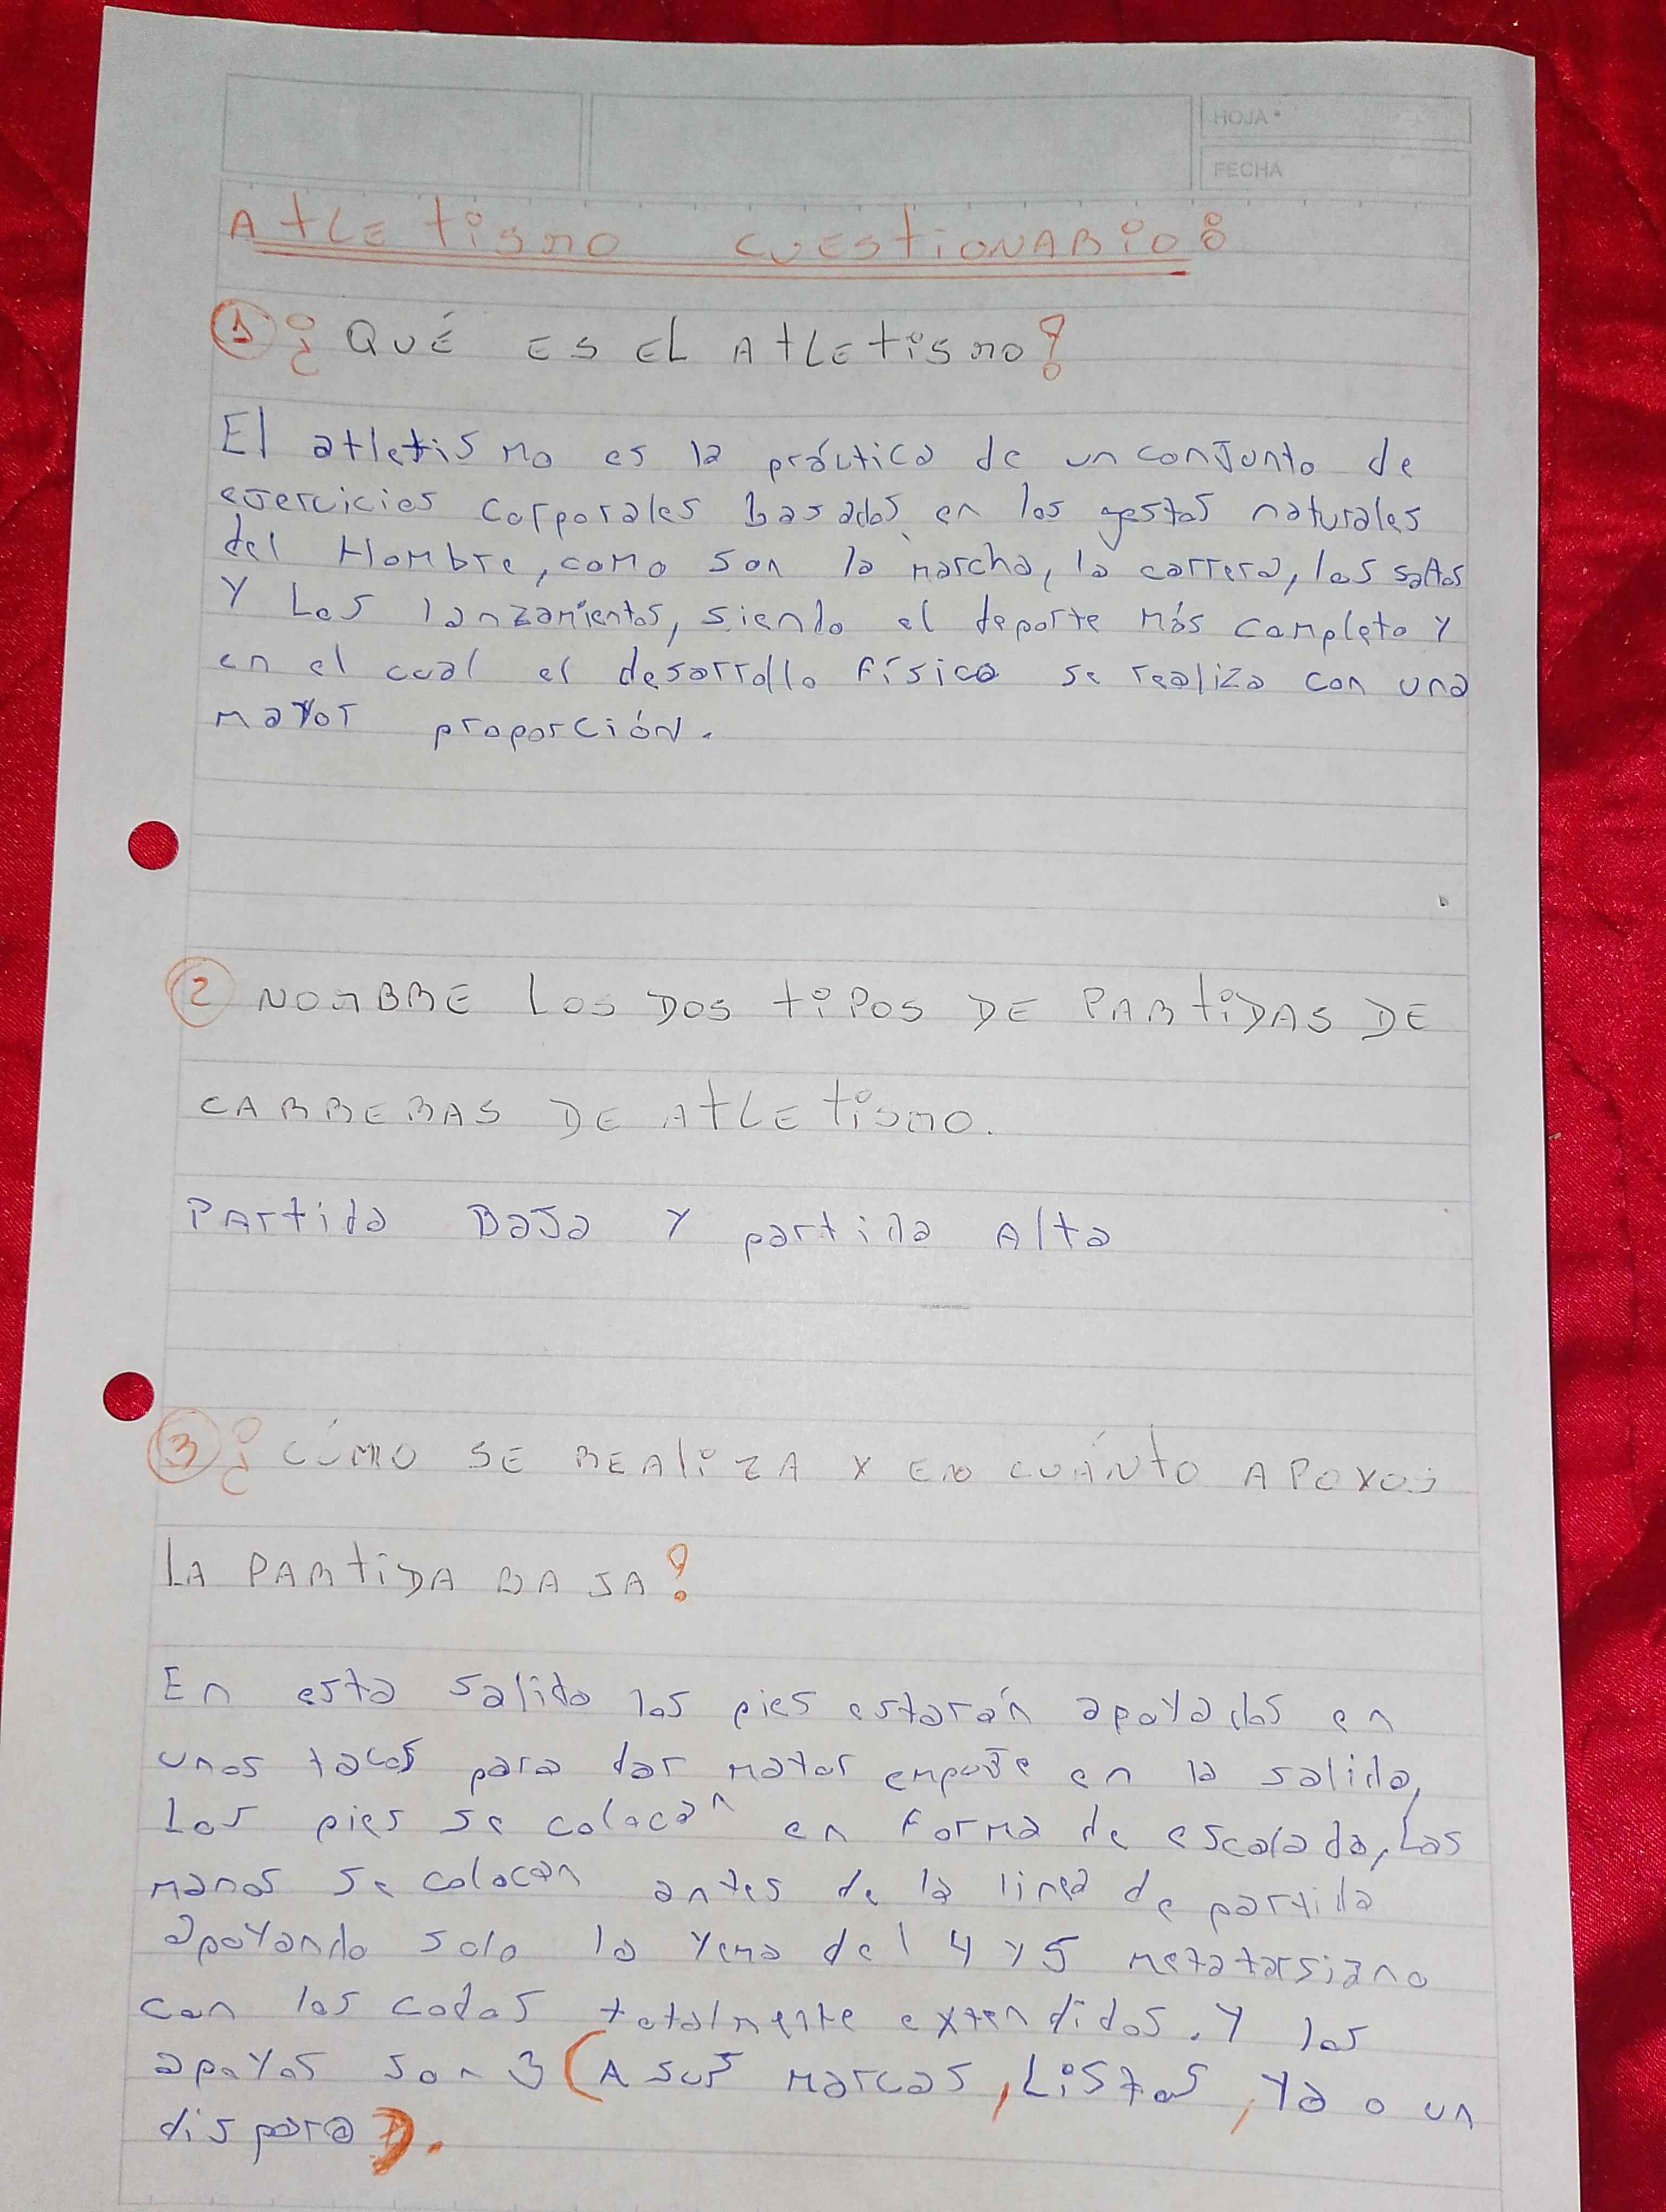 HOJA
FECHA
Atletismo cuestionario:
1 ¿Qué es el atletismo?
El atletismo es la práctica de un conjunto de
ejercicios corporales basados en los gestos naturales
del Hombre, como son la marcha, la carrera, los saltos
Y Los lanzamientos, siendo el deporte más completo y
en el cual el desarrollo físico se realiza con una
mayor proporción.
2 Nombre los dos tipos de partidas de
carreras de atletismo.
Partida Baja y partida Alta
3 ¿Cómo se realiza y en cuánto apoyos
la partida baja?
En esta salida los pies estarán apoyados en
unos tacos para dar mayor empuje en la salida,
Los pies se colocan en forma de escalada, Las
manos se colocan antes de la linea de partida
apoyando solo la yema del 4 y 5 metatarsiano
con los codos totalmente extendidos. Y los
apoyos son 3 (A sus marcas, Listos, Ya o un
disparo).